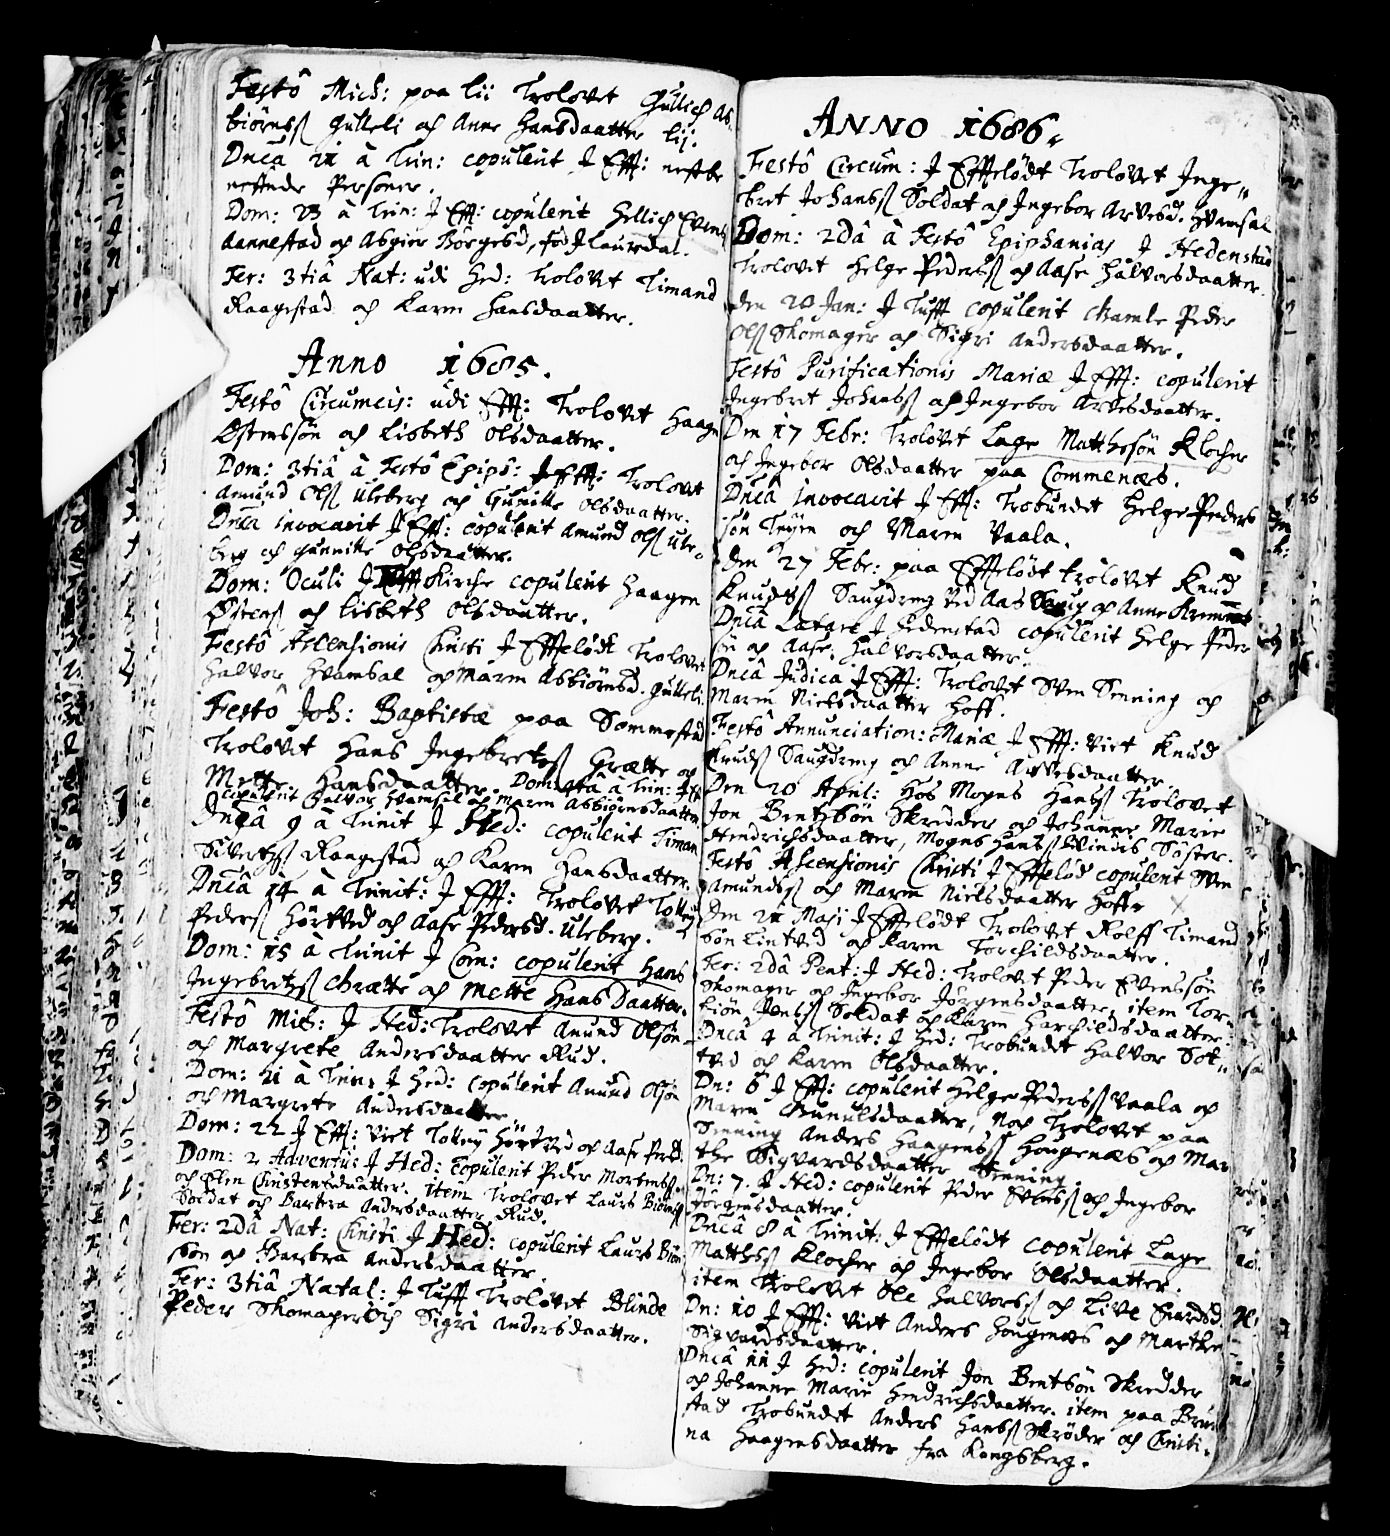 Festô Mich: paa lii Trolovet Gullich As-
biörnsß Gulleli och Anne Hansdaatter lij.
Dncâ 21 à Trin: copulerit J Efft: nestbe
neffnde Personer.
Dom: 23 à Trin: J Eft: copulerit Hellich Evens
Aannestad och Asgier Börgesd, fød J Laurdal.
Fer: 3tiâ Nat: udi Hed: Trolovet Timand
Raagestad och Karen Hansdaatter.
Anno 1685.
Festô Circumcis: udi Efft: Trolovet Haagen
Østenssön och Lisbeth Olsdaatter.
Dom: 3tiâ à Festô Epiph: J Efft: Trolovet
Amund Olß Uleberg och Gunille Olsdaatter.
Dncâ invocavit J Eff: copulerit Amund Olß Ule-
berg och Gunnille Olsdaatter.
Dom: Oculi J Kirche copulerit Haagen
Østensß och Lisbeth Olsdaatter.
Festô Ascensionis Christi J Efftelödt Trolovet
Halvor Hvamsal och Maren Asbiörnsd. Gulleli.
Festô Joh: Baptistæ paa Sommestad
Trolovet Hans Ingebretsß Grætte och
Mette Hansdaatter. Dom: à Trin: J Eft
copulerit Halvor Hvamsal och Maren Asbiörnsdaatter.
Dncâ 9 à Trinit J Hed: copulerit Timan
Sivertsß Raagestad och Karen Hansdaatter.
Dncâ 14 à Trinit: J Efft: Trolovet Tollny
Pedersß Hörtved och Aase Pedersd. Uleberg.
Dom: 15 à Trinit J Com: copulerit Hans
Ingebretsß Grætte och Mette Hans Daatter.
Festô Mich: J Hed: Trolovet Anund Olsön
och Margrete Andersdaatter Rud.
Dom: 21 à Trin: J Hed: copulerit Anund Olsön
och Margrete Andersdaatter
Dom: 22 J Eff: Viet Tollny Hörtved och Aase Pedersd.
Dom: 2 Adventus J Hed: copulerit Peder Mortensß
och Elen Christensdaatter. item Trolovet Laurs Biörnsß
Soldat och Barbra Andersdaatter Rud.
Fer: 2dâ Nat: Christi J Hed: copulerit Laurs Biön
sön och Barbra Andersdaatter.
Fer: 3tiâ Natal: J Tufft Trolovet Blinde
Peder Skomager Och Sigri Andersdaatter.
ANNO 1686.
Festô Circum: J Efftelödt Trolovet Inge-
bret Johansß Soldat och Ingebor Arvesd. Hvamsal
Dom: 2dâ à Festô Epiphanias J Hedenstad
Trolovet Helge Pedersß och Aase Halvorsdaatter.
Den 20 Jan: J Tufft copulerit Gamle Peder
Olß Skomager och Sigri Andersdaatter.
Festô Purificationis Mariæ J Efft: copulerit
Ingebret Johansß och Ingebor Arvesdaatter.
Den 17 Febr: Trolovet Lage Matthesön Klocher
och Ingebor Olsdaatter paa Commenæs.
Dncâ invocavit J Eff: Trobundet Helge Peders
sön och Maren Vaala.
Den 27 Febr: paa Efftelödt trolovet Knud
Knudsß Saugdreng ved Aas och Anne
Dncâ Lætare J Hedenstad copulerit Helge Peder
sön och Aase Halvorsdaatter.
Dncâ Judica J Eff: Trolovet Sven Senning och
Maren Nielsdaatter Hoff.
Festô Annunciation: Mariæ J Efft: Viet Knud
Knudsß Saugdreng och Anne Arvesdaatter
Den 20 April: Hos Mogns Hansß Trolovet
Jon Bentzsön Skredder och Johanne Marie
Hendrichsdaatter, Mogns Hansß Qvindis Söster.
Festô Ascensionis Christi J Efftelöd copulerit Sven
Amundsß och Maren Nielsdaatter Hoff
Den 21 Maji J Efftelödt Trolovet Rolff Timand
sön Lintvid och Karen Torchildsdaatter.
Fer: 2dâ Pent: J Hed: Trolovet Peder Svenssön
Skomager och Ingebor Jörgensdaatter, item Torn-
biön Jensß Soldat och Karen Harchildsdaatter.
Dncâ 4 à Trinit: J Hed: Trobundet Halvor Söt-
tved och Karen Olsdaatter.
Dn: 6 J Efft: copulerit Helge Pedersß Vaala och
Maren Gunulsdaatter, Noch Trolovet paa
Senning Anders Haagensß Hougenæs och Mar
the Sigvardsdaatter Senning.
Dn: 7. J Hed: copulerit Peder Svensß och Ingebor
Jörgensdaatter.
Dncâ 8 à Trinit: J Efftelödt copulerit Lage
Matthsß Klocher och Ingebor Olsdaatter.
item Trolovet Ole Halvorsß och Live Evardsd.
Dn: 10 J Efft: Viet Anders Hougenæs och Marthe
Sigvardsdaatter.
Dncâ 11 J Hed: copulerit Jon Bentsön Skredder
och Johanne Marie Hendrichsdaatter. item paa
stad Trobundet Anders Hansß Skröder och Christi-
na Haagensdaatter fra Kongsberg.